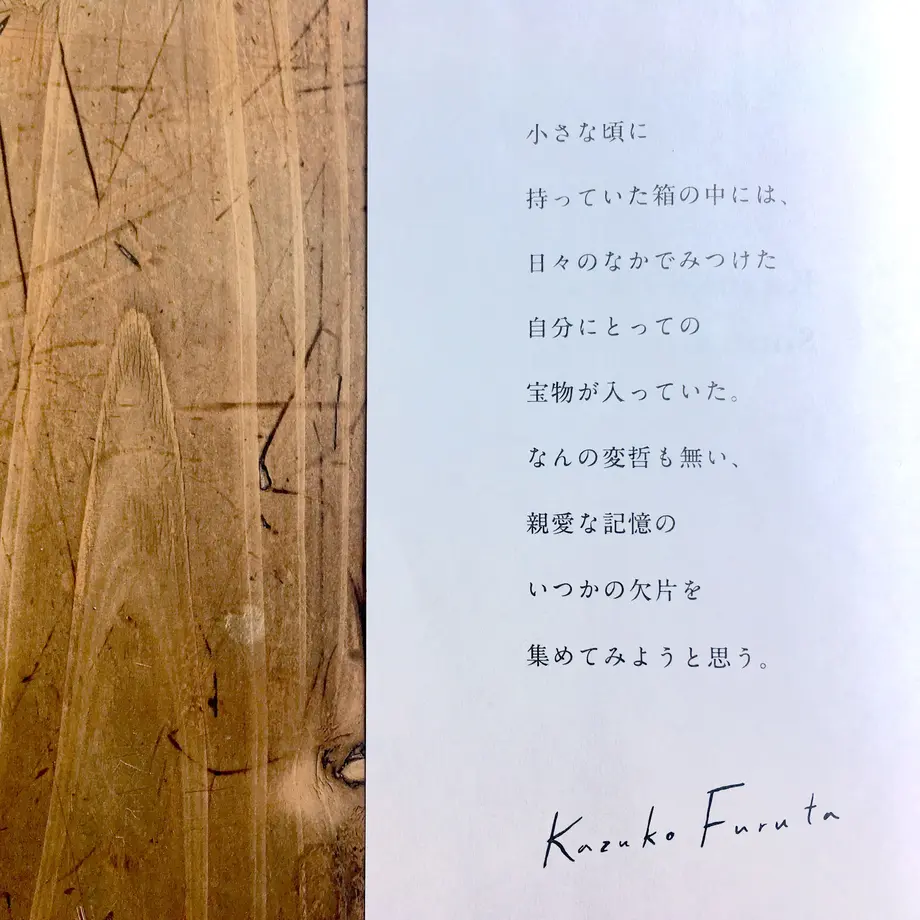 小さな頃に
持っていた箱の中には、
日々のなかでみつけた
自分にとっての
宝物が入っていた。
なんの変哲も無い、
親愛な記憶の
いつかの欠片を
集めてみようと思う。
Kazuko Furuta